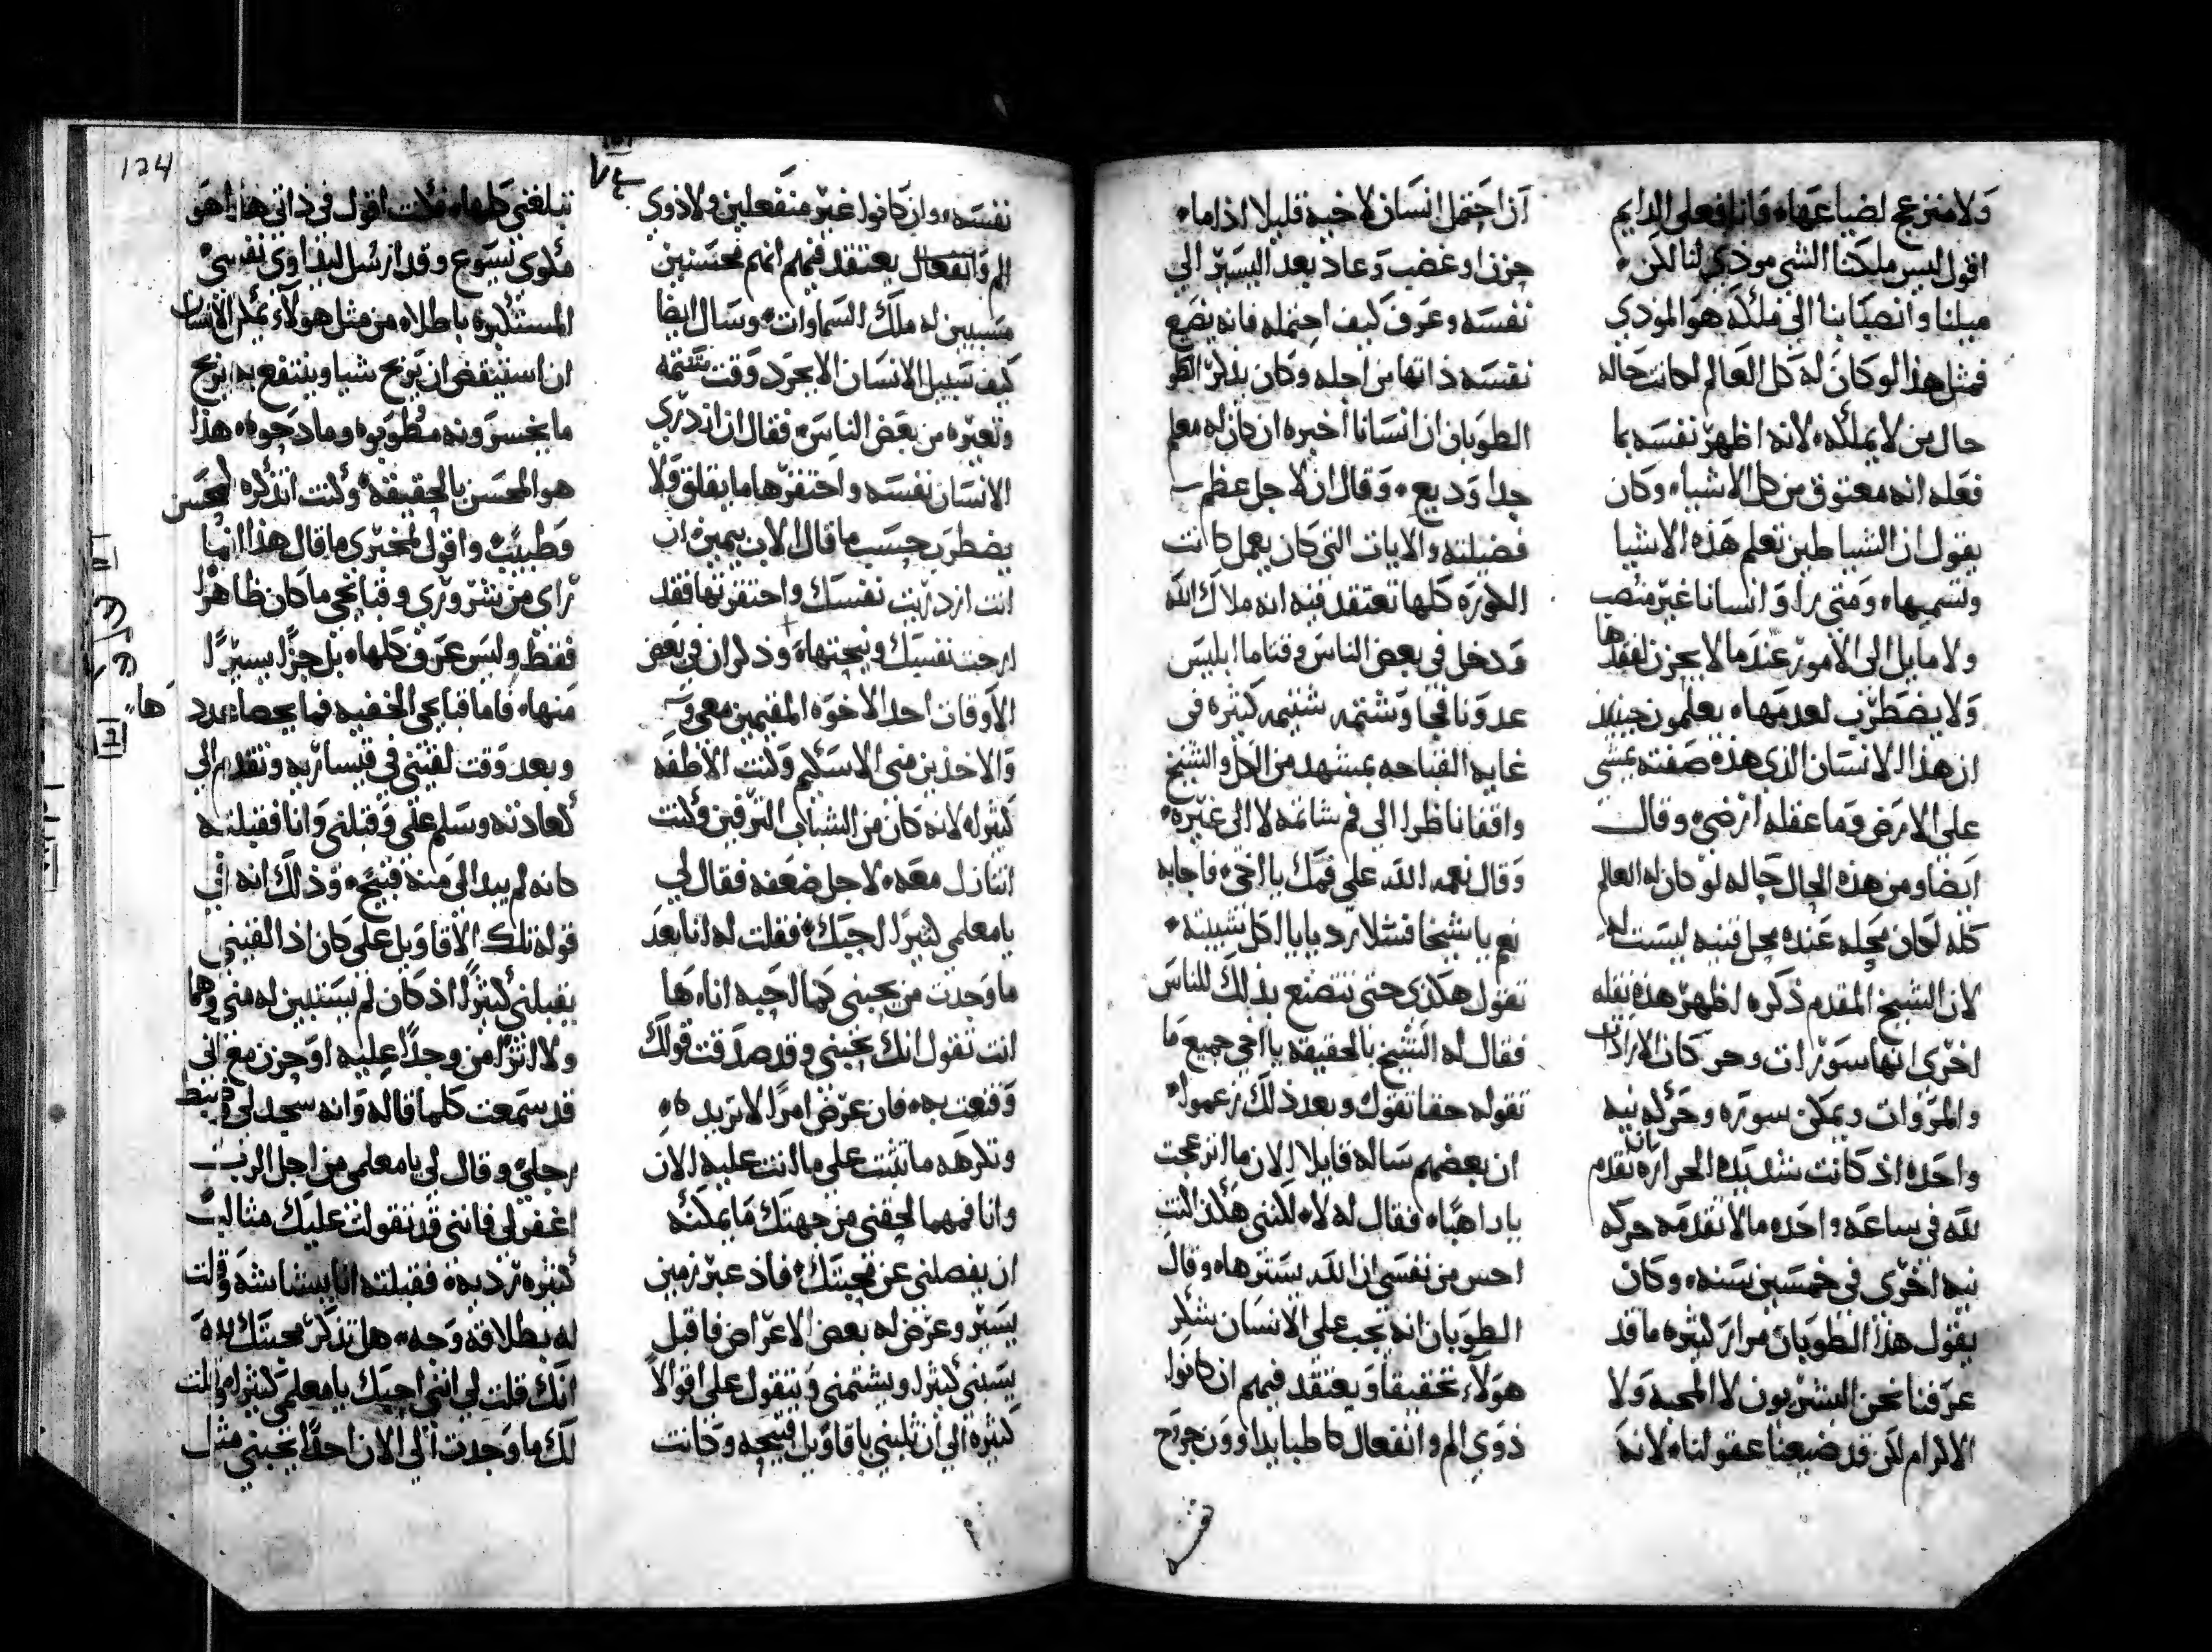 ولا منزعج لضياعها، وانا فعلى الدايم
اقول ليس ملكنا الشي موذي لنا لكن
ميلنا وانصبابنا الى ملكه هو الموذي
فمثل هذا لو كان له كل العالم لكانت حاله
حال من لا يملكه لانه اظهر نفسه بما
فعله انه معتوق من كل الاشياء وكان
يقول ان الشياطين تعلم هذه الاشيا
وتسميها، ومتى راوا انسانا غير منصب
ولا مايل الى الامور عندما لا يحزن لفقدها
ولا يضطرب لعدمها، يعلمون حينيذ
ان هذا الانسان الذي هذه صفته يمشي
على الارض وما عقله ارضي، وقال
ايضا ومن هذه الحال حاله لو كان له العالم
كله لكان محله عنده محل قنيه ليست له
لان الشيخ المقدم ذكره اظهر هذه نقله
اخرى انها سورات وحركات الارادات
والمروات ويمكن سوره وحركه نيه
واحده اذ كانت شديدة الحراره بان تقدم
لله في ساعه واحده ما لا تقدمه حركه
نيه اخرى في خمسين سنه، وكان
يقول هذا الطوبان مرارا كثيره ما قد
عرفنا نحن البشريون لا المحبه ولا
الاكرام لكن قد ضيعنا عقولنا، لانه
ان احتمل انسان لاخيه قليلا اذا ما
حزن او غضب وعاد بعد اليسير الى
نفسه وعرف كيف احتمله فانه يضع
نفسه ذاتها من اجله وكان يذكر هو
الطوبان ان انسانا اخبره ان كان له معلم
جدا وديع، وقال ان لاجل عظم
فضيلته والايات التي كان يعمل كانت
الكوره كلها تعتقد فيه انه ملاك الله
ودخل في بعض الناس وقتا ما ابليس
عدونا فجا وشتمه شتيمه كثيره في
غايه القباحه بمشهد من الكل والشيخ
واقفا ناظرا الى فم شاتمه لا الى غيره
وقال نعمة الله على فمك يا اخي، فاجابه
نعم يا شيخا
تقول هكذي حتى تتصنع بذلك للناس
فقال له الشيخ بالحقيقه يا اخي جميع ما
تقوله حقا تقول وبعد ذلك زعموا
ان بعضهم ساله قايلا الان ما انزعجت
يا راهبا، فقال له لا، لكنني هكذا كنت
احس من نفسي ان الله يسترها، وقال
الطوبان انه يجب على الانسان شكر
هولاء تحقيقا ويعتقد فيهم ان كانوا
ذوي الم وانفعال كاطبا يداوون جرح
نفسه
نفسه، وان كانوا غير منفعلين ولا ذوي
الم وانفعال يعتقد فيهم انهم محسنين
مسببين له ملك السماوات، وسال ايضا
كيف سبيل الانسان الا يحرد وقت شتمه
وتعيره من بعض الناس، فقال ان ازدرى
الانسان نفسه واحتقرها ما يقلق ولا
يضطرب حسب ما قال الاب بيمين ان
انت ازدريت نفسك واحتقرتها فقد
ارحت نفسك ونيحتها، وذكر ان في بعض
الاوقات احد الاخوه المقيمين معي
والاخذين مني الاسكيم وكنت الاطفه
كثيرا، لانه كان من الشباب الترفين وكنت
اتنازل معه، لاجل ضعفه فقال لي
يا معلمي كثيرا احبك، فقلت له انا بعد
ما وجدت من يحبني كما احبه انا، ها
انت تقول انك تحبني وقد صدقت قولك
وقنعت به، فان عرض امرا لا تريده
وتكرهه ما تثبت على ما انت عليه الان
وانا فمهما لحقني من جهتك ما يمكنه
ان يفصلني عن محبتك، فاذ عبر زمن
يسير وعرض له بعض الاعراض فاقبل
يسبني كثيرا ويشتمني ويتقول على اقوالا
كثيرة الى ان ثلبني باقاويل قبيحه وكانت
تبلغني كلها، فكنت اقول في ذاتي هذا هو
مكوى يسوع وقد ارسل ليداوي نفسي
المستكبره باطلا، من مثل هولاء يمكن الانسان
ان استيقض ان يربح شيا وينتفع به ربح
ما يخسرونه مطوبوه ومادحوه، هذا
هو المحسن بالحقيقه، وكنت اتذكره كمحسن
وطبيب، واقول لمخبري ما قال هذا انما
راى من شروري وقبايحي ما كان ظاهرا
فقط وليس عرف كلها، بل جزءا يسيرا
منها، فاما قبايحي الخفيه فما يحصا عددها
وبعد وقت لقيني في قيساريه وتقدم الى
كعادته وسلم علي وقبلني وانا فقبلته
كانه لم يبدا الى منه قبيح، وذلك انه في
قوله تلك الاقاويل على كان اذا لقيني
يقبلني كثيرا، اذ كان لم يستبين له مني وهما
ولا اثرا من وجدا عليه او حزن مع اني
قد سمعت كلما قاله وانه سجد لي وضبط
رجلي، وقال لي يا معلمي من اجل الرب
اغفر لي فانني قد تقولت عليك مثالب
كثيره رديه، فقبلته انا ببشاشه وقلت
له بطلاقة وجه، هل تذكر محبتك
انك قلت لي انني احبك يا معلمي كثيرا، وقلت
لك ما وجدت الى الان احدا يحبني مثل
124